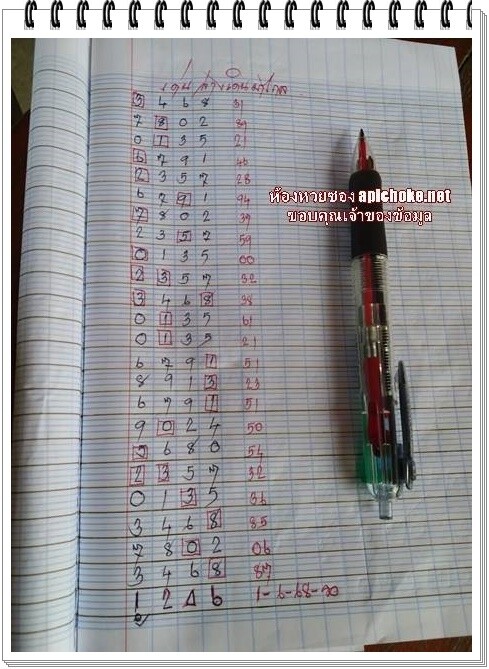 เด่นล่างเดนมาไกล
3 4 6 8 31
7 8 0 2 89
0 1 3 5 21
6 7 9 1 46
2 3 5 7 28
6 7 9 1 94
7 8 0 2 39
2 3 5 7 59
0 1 3 5 00
2 3 5 7 32
3 4 6 8 38
0 1 3 5 61
0 1 3 5 21
6 7 9 1 51
8 9 1 3 23
6 7 9 1 51
9 0 2 4 50
5 6 8 0 54
2 3 5 7 32
0 1 3 5 36
3 4 6 8 85
7 8 0 2 06
3 4 6 8 87
1 2 4 6 1-6-68-20
ห้องหวยซอง apichoke.net
ขอบคุณเจ้าของข้อมูล